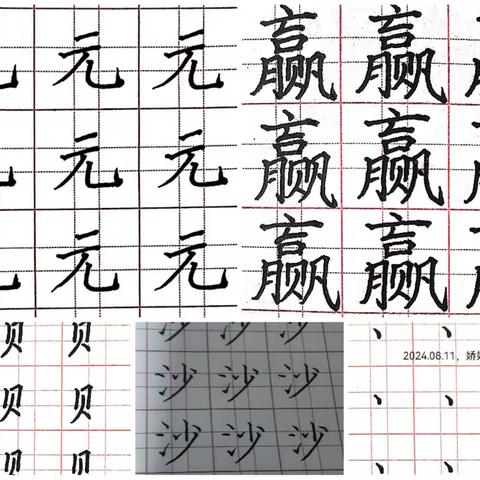 元 元
元 元
元 元
赢 赢
赢 赢
赢 赢
贝 贝
贝 贝
贝 贝
沙 沙 沙
沙 沙 沙
沙 沙 沙
丶 丶
2024.08.11，娇
丶 丶
丶 丶